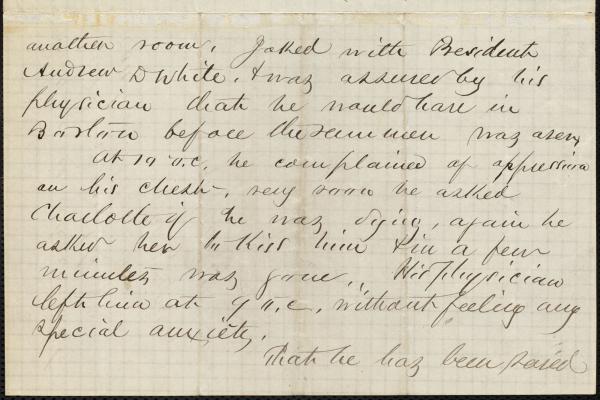 another room. Joked with President
Andrew D White. & was assured by his
physician that he would be in
Boston before the summer was over,
At 10 o.c. he complained of oppression
on his chest, very soon he asked
Charlotte if he was dying, again he
asked her to Kiss him & in a few
minutes was gone.. His Physician
left him at 9 o.c. without feeling any
special anxiety.
That he has been